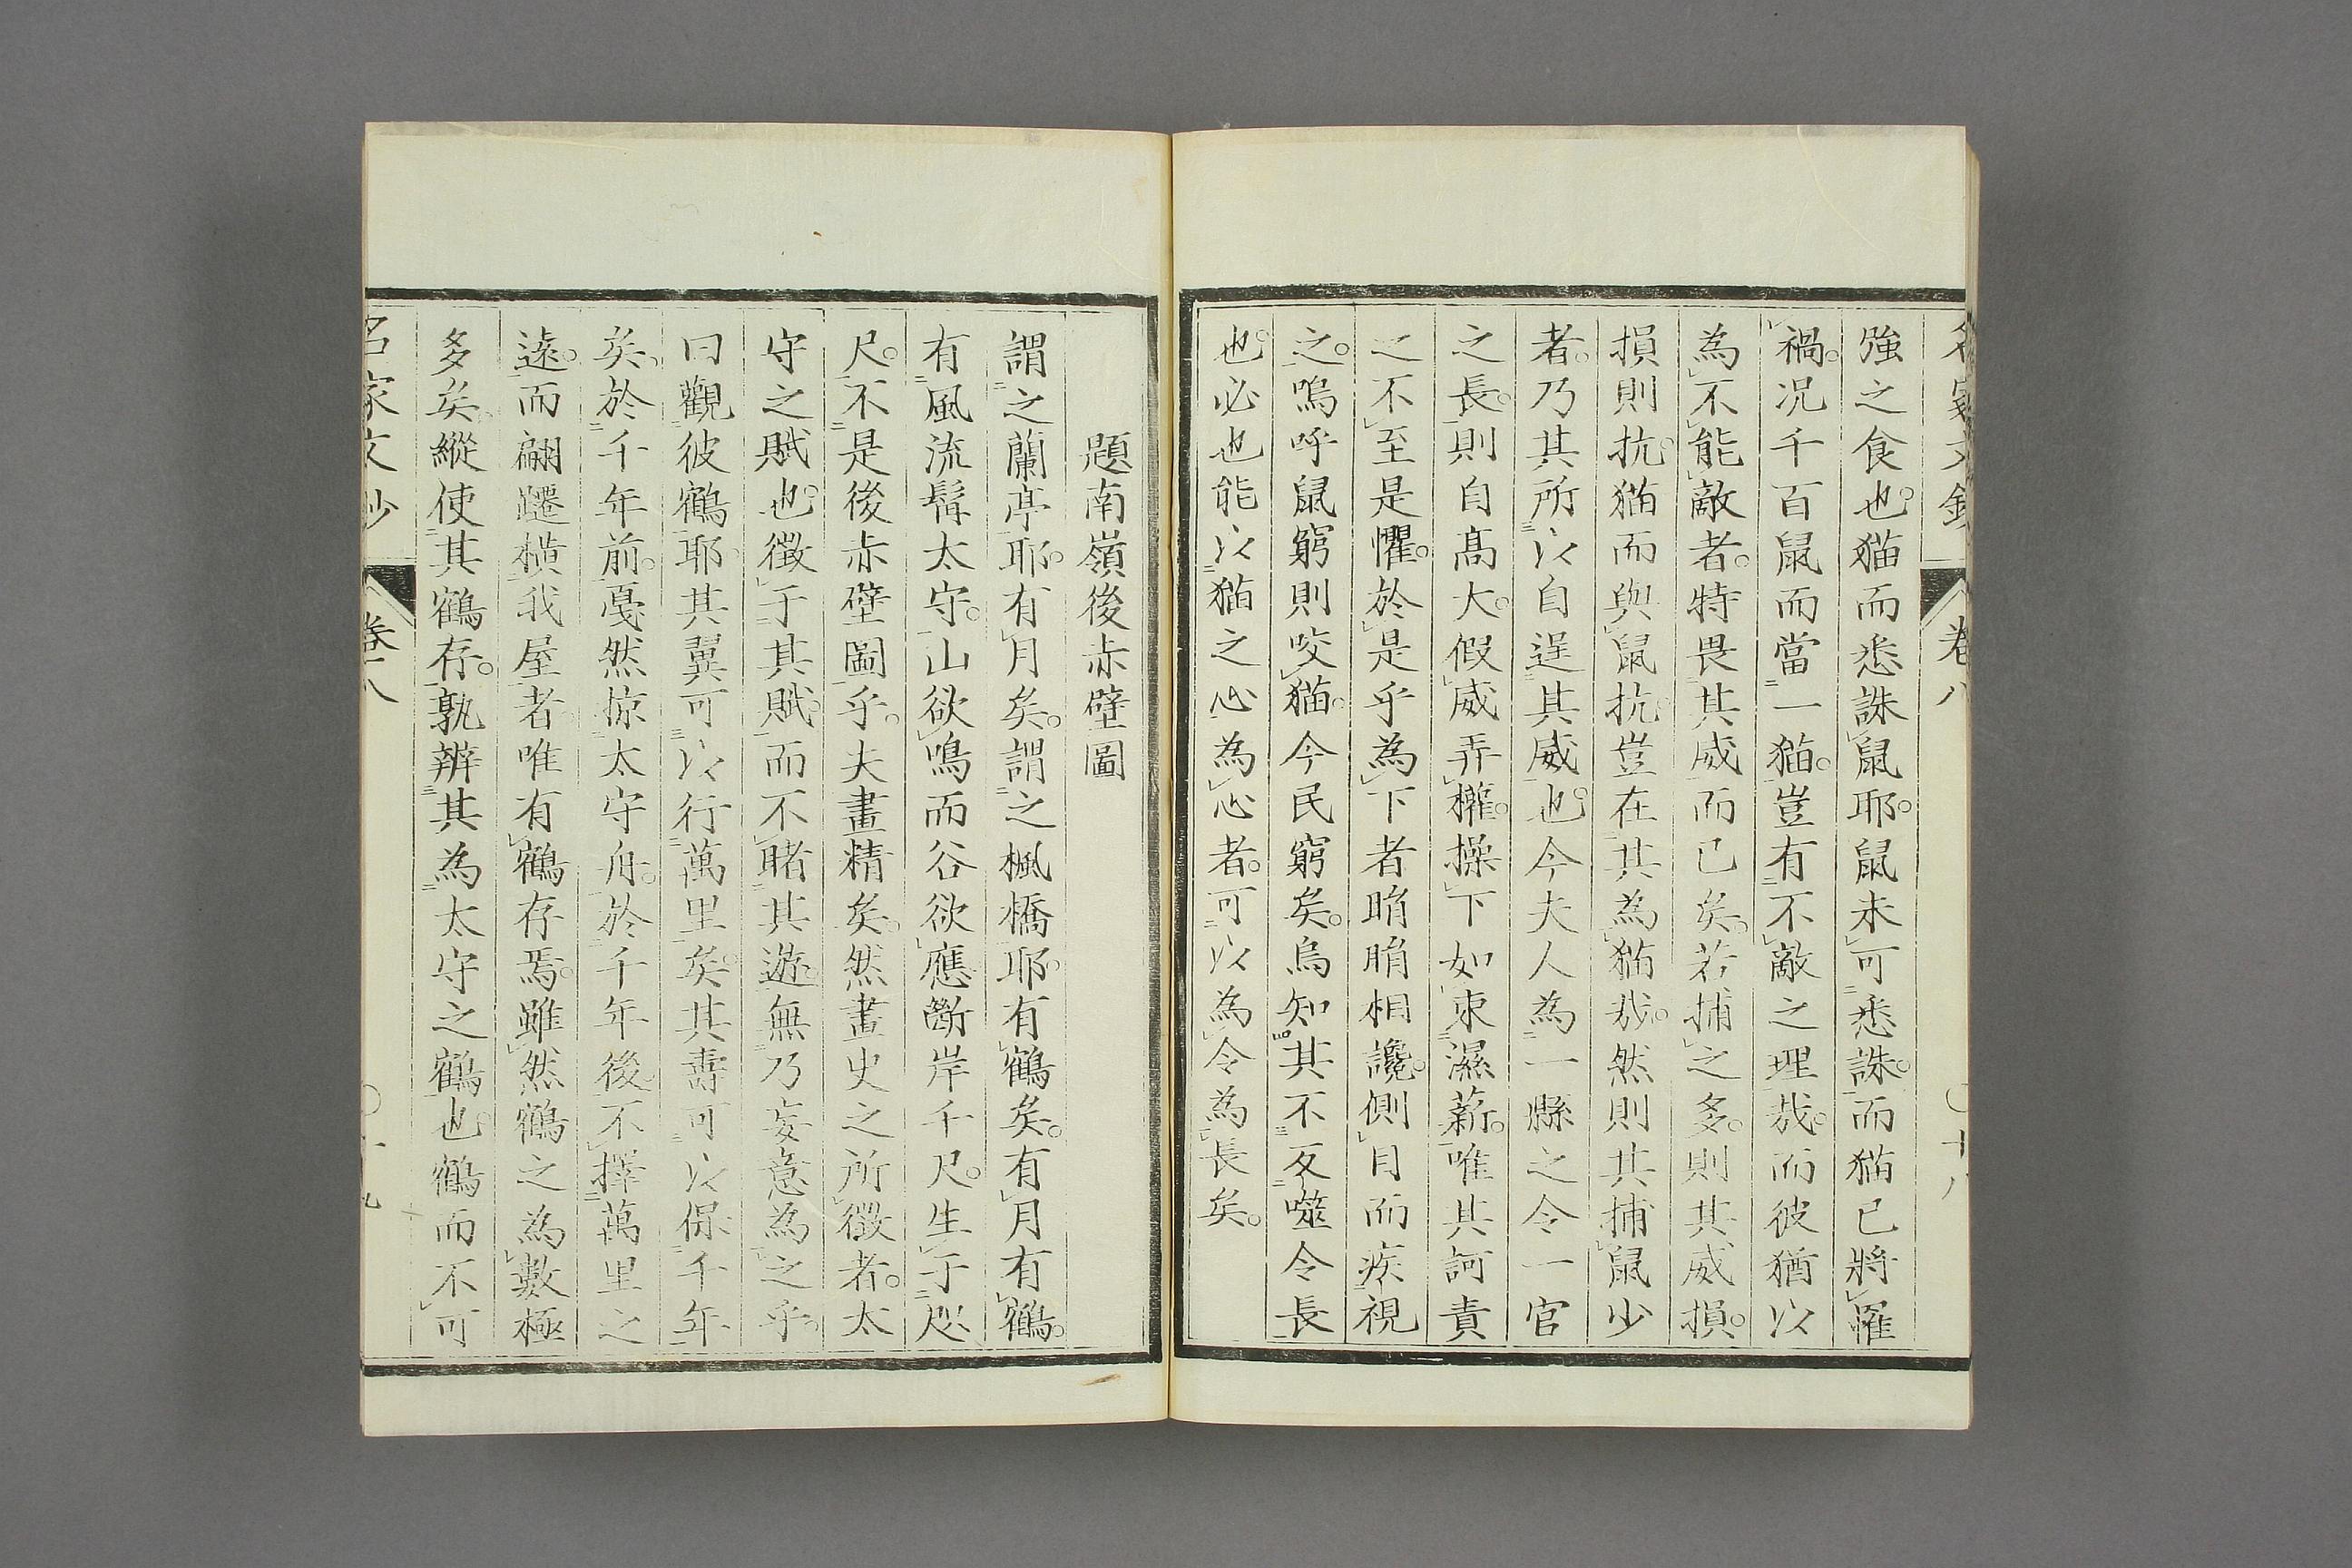 強之食也。猫而悉誅鼠耶。鼠未可悉誅。而猫已將罹
禍。况千百鼠而當一猫。豈有不敵之理哉。而彼猶以
為不能敵者。特畏其威而已矣。若捕之多。則其威損。
損則抗。猫而與鼠抗。豈在其為猫哉。然則其捕鼠少
者。乃其所以自逞其威也。今夫人為一縣之令一官
之長。則自髙大。假威弄權。操下如束濕薪。唯其訶責
之不至是懼。於是乎為下者睊睊相讒。側目而疾視
之。嗚呼鼠窮則咬猫。今民窮矣。烏知其不反噬令長
也。必也能以猫之心為心者。可以為令為長矣。
題南嶺後赤壁圖
謂之蘭亭耶。有月矣。謂之楓橋耶。有鶴矣。有月有鶴。
有風流髯太守。山欲鳴而谷欲應斷岸千尺。生于咫
尺。不是後赤壁圖乎。夫畫精矣。然畫史之所徵者。太
守之賦也。徵于其賦。而不睹其遊。無乃妄意為之乎。
曰觀彼鶴耶。其翼可以行萬里矣。其壽可以保千年
矣。於千年前。戞然掠太守舟。於千年後。不擇萬里之
遠。而翩躚橫我屋者。唯有鶴存焉。雖然鶴之為數極
多矣。縱使其鶴存。孰辨其為太守之鶴也。鶴而不可
名家文鈔
卷八